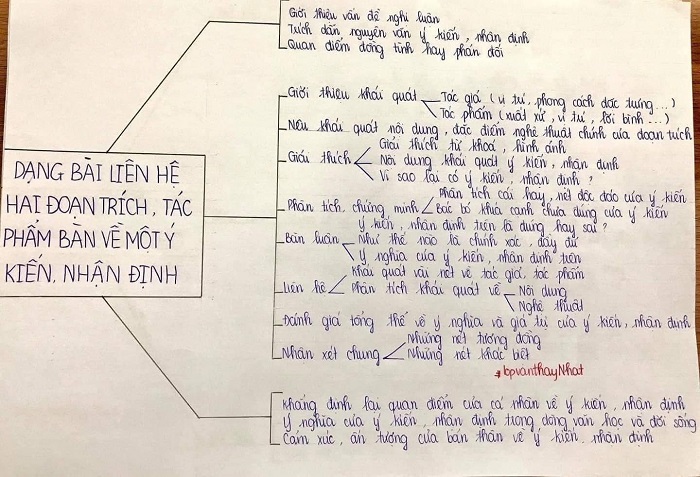 Giới thiệu vấn đề nghị luận
Trích dẫn nguyên văn ý kiến, nhận định
Quan điểm đồng tình hay phản đối
DẠNG BÀI LIÊN HỆ
HAI ĐOẠN TRÍCH, TÁC
PHẨM BÀN VỀ MỘT Ý
KIẾN, NHẬN ĐỊNH
Giới thiệu khái quát
Tác giả (vị trí, phong cách đặc trưng...)
Tác phẩm (xuất xứ, vị trí, lời bình...)
Nêu khái quát nội dung, đặc điểm nghệ thuật chính của đoạn trích
Giải thích
Giải thích từ khoá, hình ảnh
Nội dung khái quát ý kiến, nhận định
Vì sao lại có ý kiến, nhận định?
Phân tích, chứng minh
Phân tích cái hay, nét độc đáo của ý kiến
Bác bỏ khía cạnh chưa đúng của ý kiến
Bàn luận
Ý kiến, nhận định trên là đúng hay sai?
Như thế nào là chính xác, đầy đủ
Ý nghĩa của ý kiến, nhận định trên
Liên hệ
Khái quát vài nét về tác giả, tác phẩm
Phân tích khái quát về
Nội dung
Nghệ thuật
Đánh giá tổng thể về ý nghĩa và giá trị của ý kiến, nhận định
Nhận xét chung
Những nét tương đồng
Những nét khác biệt
#bpvanthayNhat
Khẳng định lại quan điểm của cá nhân về ý kiến, nhận định
Ý nghĩa của ý kiến, nhận định trong dòng văn học và đời sống
Cảm xúc, ấn tượng của bản thân về ý kiến, nhận định